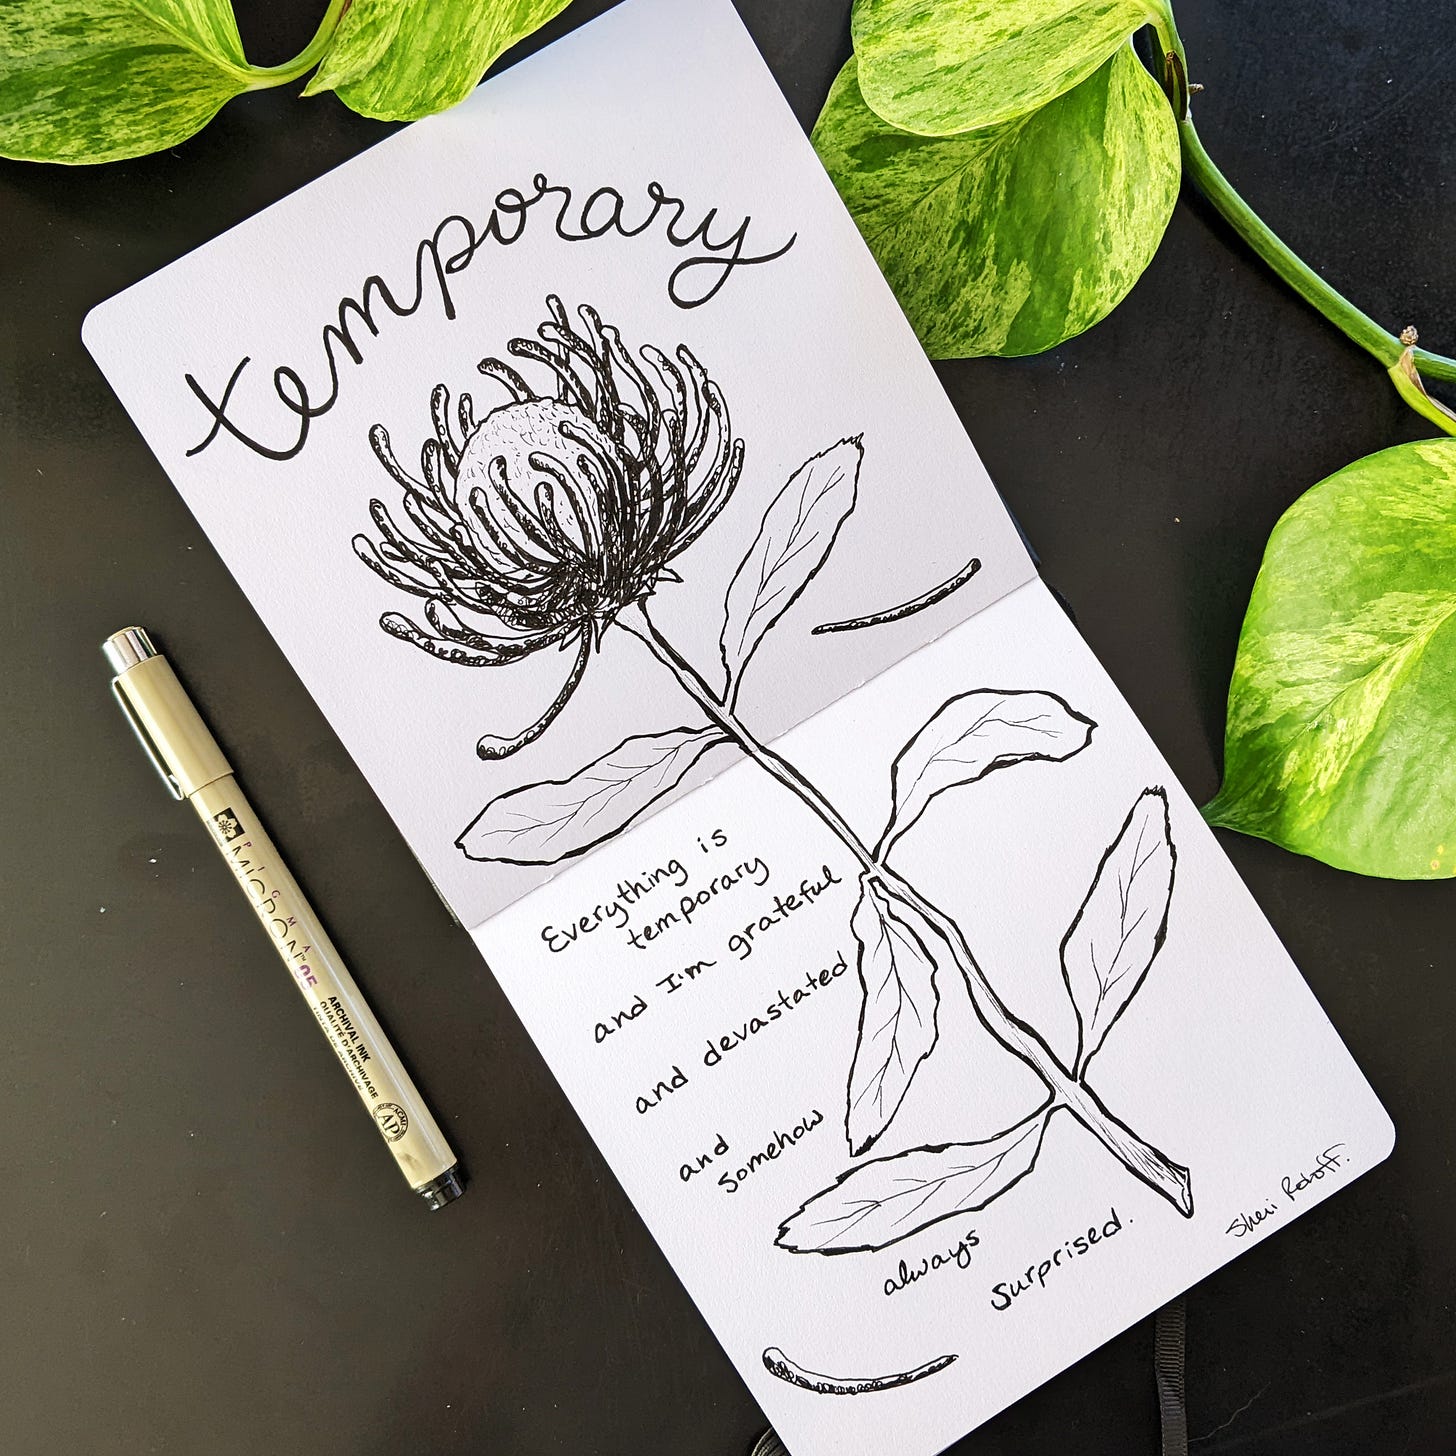 temporary
Everything is
temporary
and I'm grateful
and devastated
and
somehow
always
surprised.
PIGMA
MICRON 05
ARCHIVAL INK
QUALITÉ D'ARCHIVAGE
AP